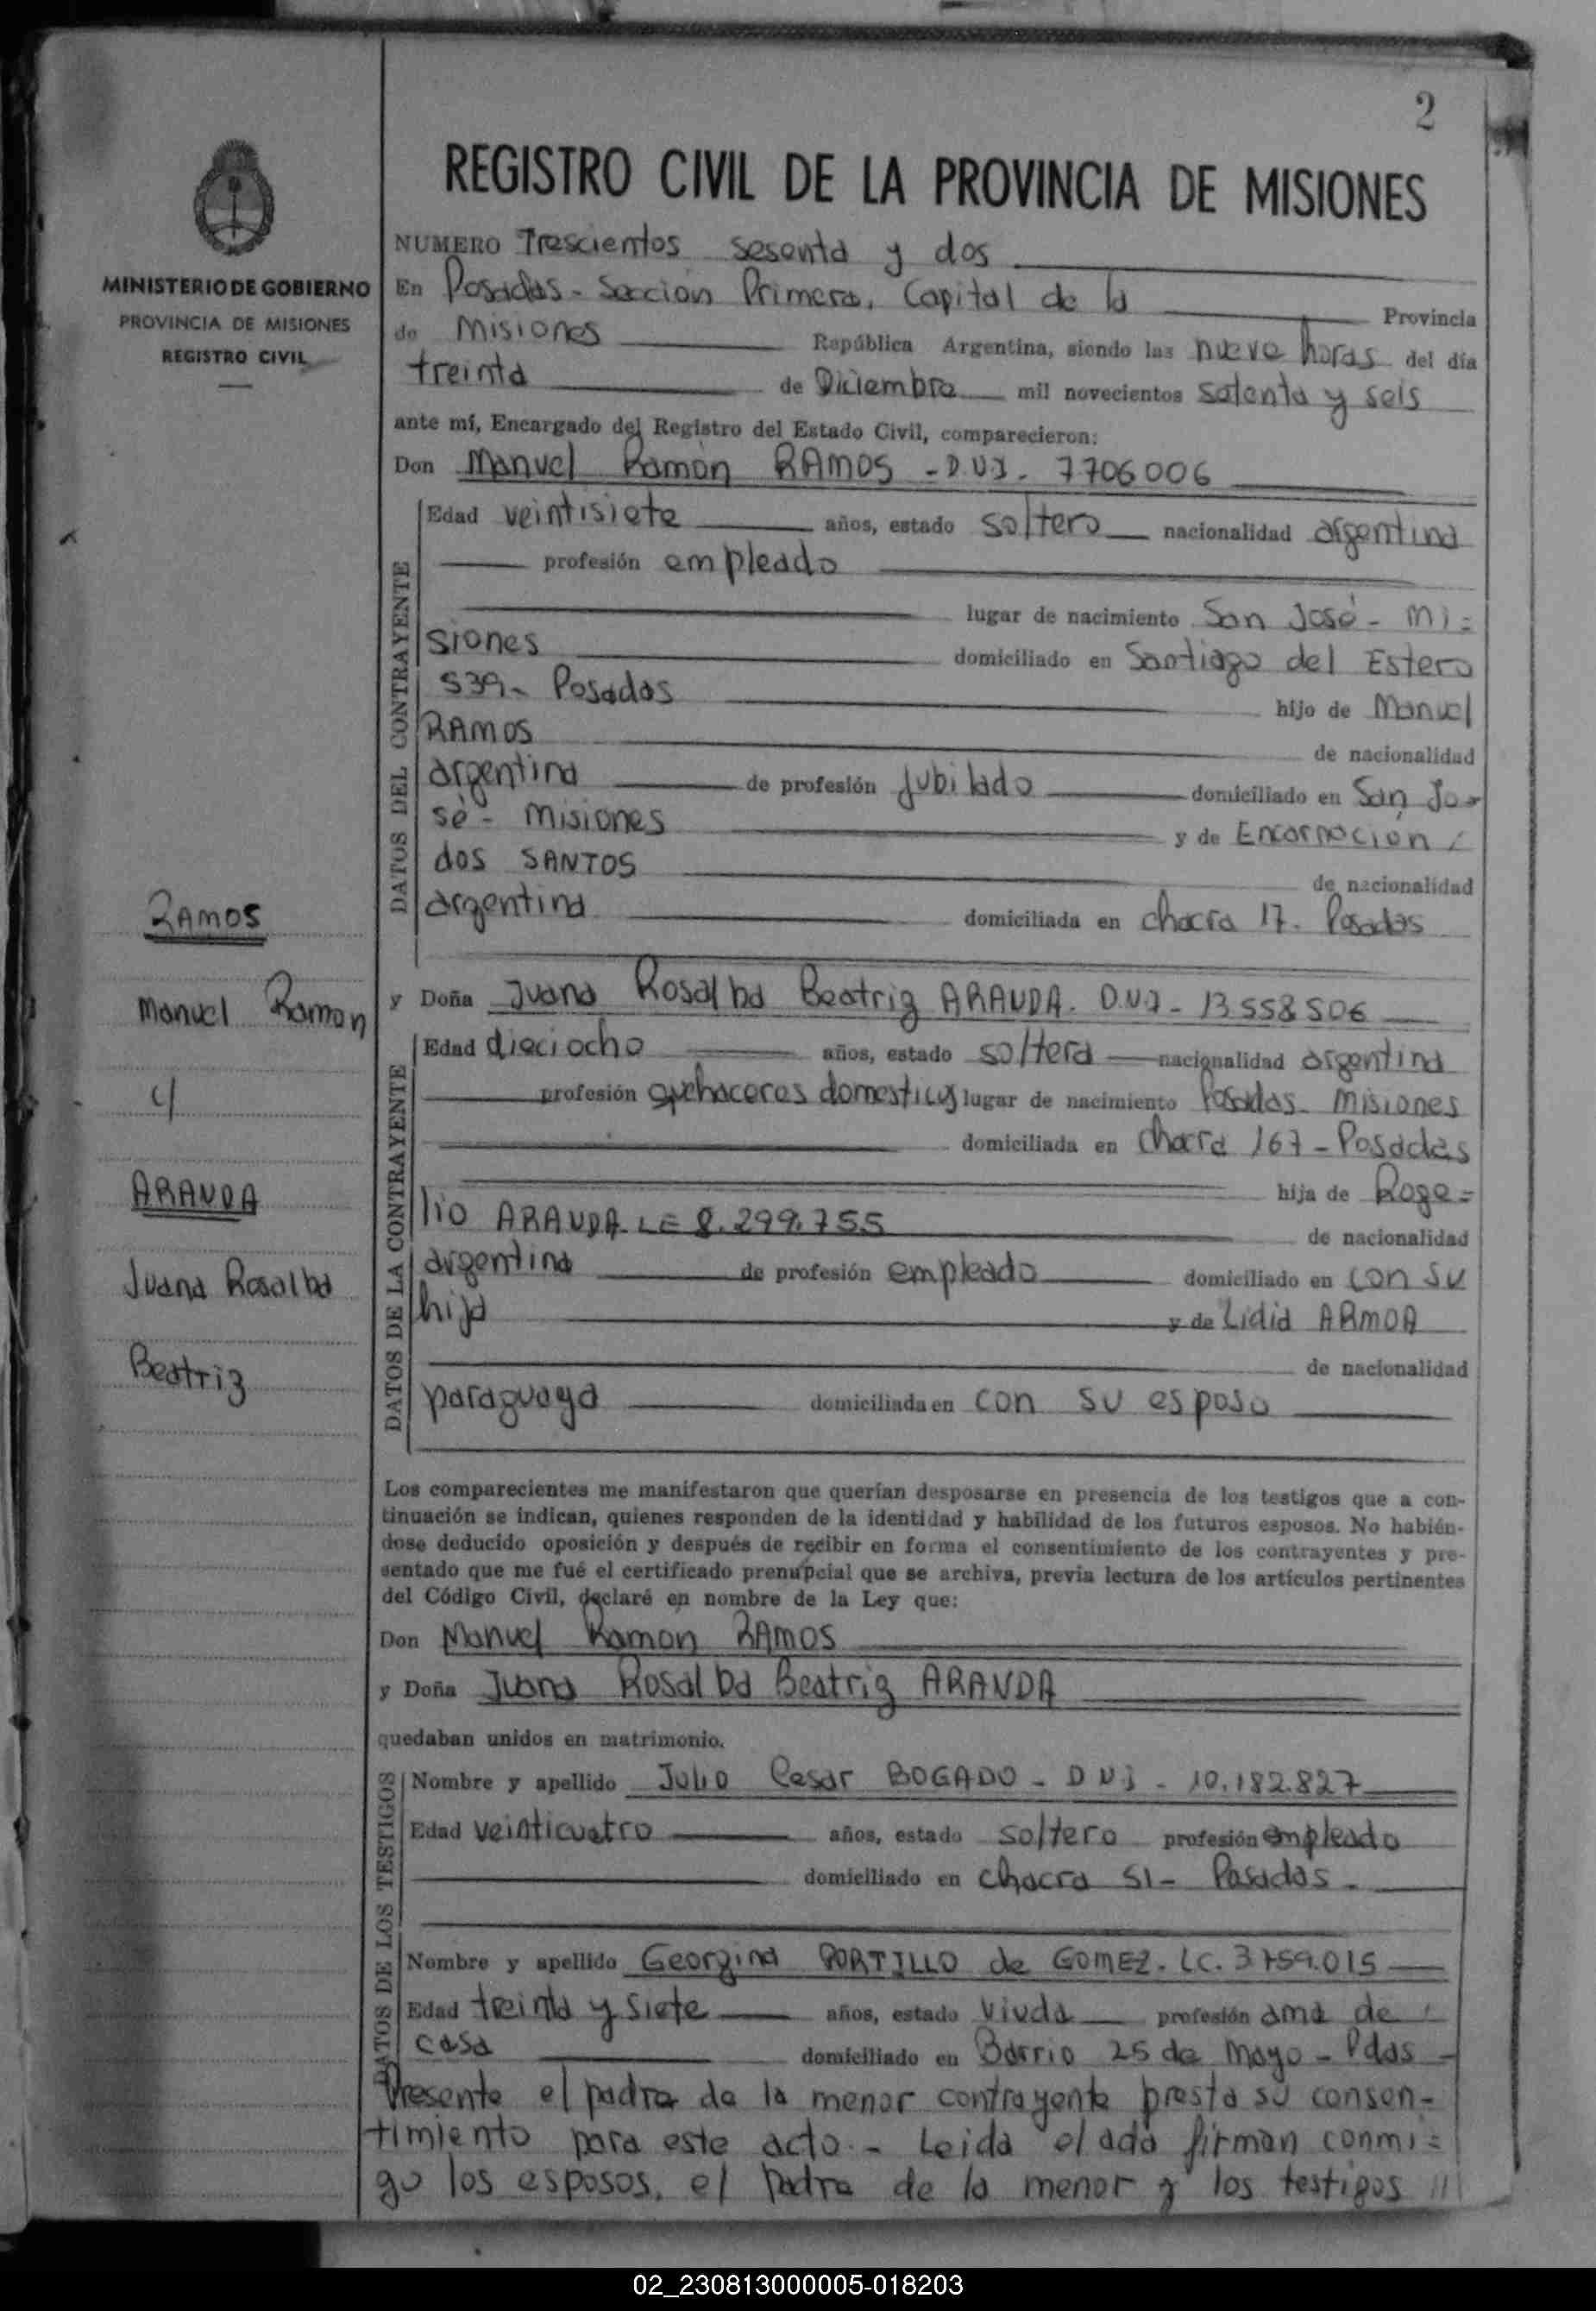 2
REGISTRO CIVIL DE LA PROVINCIA DE MISIONES
MINISTERIO DE GOBIERNO
PROVINCIA DE MISIONES
REGISTRO CIVIL
NUMERO Trescientos sesenta y dos
En Posadas - Sección Primera, Capital de la Provincia
de Misiones República Argentina, siendo las nueve horas del día
treinta de Diciembre mil novecientos setenta y seis
ante mí, Encargado del Registro del Estado Civil, comparecieron:
Don Manuel Ramón RAMOS - D.N.I. 7706006
DATOS DEL CONTRAYENTE
Edad veintisiete años, estado soltero nacionalidad argentina
profesión empleado
lugar de nacimiento San José - Mi=
siones domiciliado en Santiago del Estero
539 - Posadas hijo de Manuel
RAMOS de nacionalidad
argentina de profesión Jubilado domiciliado en San Jo-
sé - Misiones y de Encarnación
dos SANTOS de nacionalidad
argentina domiciliada en chacra 17. Posadas
RAMOS
Manuel Ramon
y
ARANDA
Juana Rosalba
Beatriz
y Doña Juana Rosalba Beatriz ARANDA. D.N.I - 13558506
DATOS DE LA CONTRAYENTE
Edad dieciocho años, estado soltera nacionalidad argentina
profesión quehaceres domesticos lugar de nacimiento Posadas - Misiones
domiciliada en Chacra 167 - Posadas
hija de Roge=
lio ARANDA LE 8.299.755 de nacionalidad
argentina de profesión empleado domiciliado en con su
hija y de Lidia ARMOA
de nacionalidad
paraguaya domiciliada en con su esposo
Los comparecientes me manifestaron que querían desposarse en presencia de los testigos que a con-
tinuación se indican, quienes responden de la identidad y habilidad de los futuros esposos. No habién-
dose deducido oposición y después de recibir en forma el consentimiento de los contrayentes y pre-
sentado que me fué el certificado prenupcial que se archiva, previa lectura de los artículos pertinentes
del Código Civil, declaré en nombre de la Ley que:
Don Manuel Ramon RAMOS
y Doña Juana Rosalba Beatriz ARANDA
quedaban unidos en matrimonio.
DATOS DE LOS TESTIGOS
Nombre y apellido Julio Cesar BOGADO - D N I - 10.182.827
Edad veinticuatro años, estado soltero profesión empleado
domiciliado en chacra 51 - Posadas -
Nombre y apellido Georgina PORTILLO de GOMEZ. LC. 3.759.015
Edad treinta y siete años, estado viuda profesión ama de
casa domiciliado en Barrio 25 de Mayo - Pdas -
Presente el padre de la menor contrayente presta su consen-
timiento para este acto. - Leida el acta firman conmi=
go los esposos, el padre de la menor y los testigos ///
02_230813000005-018203